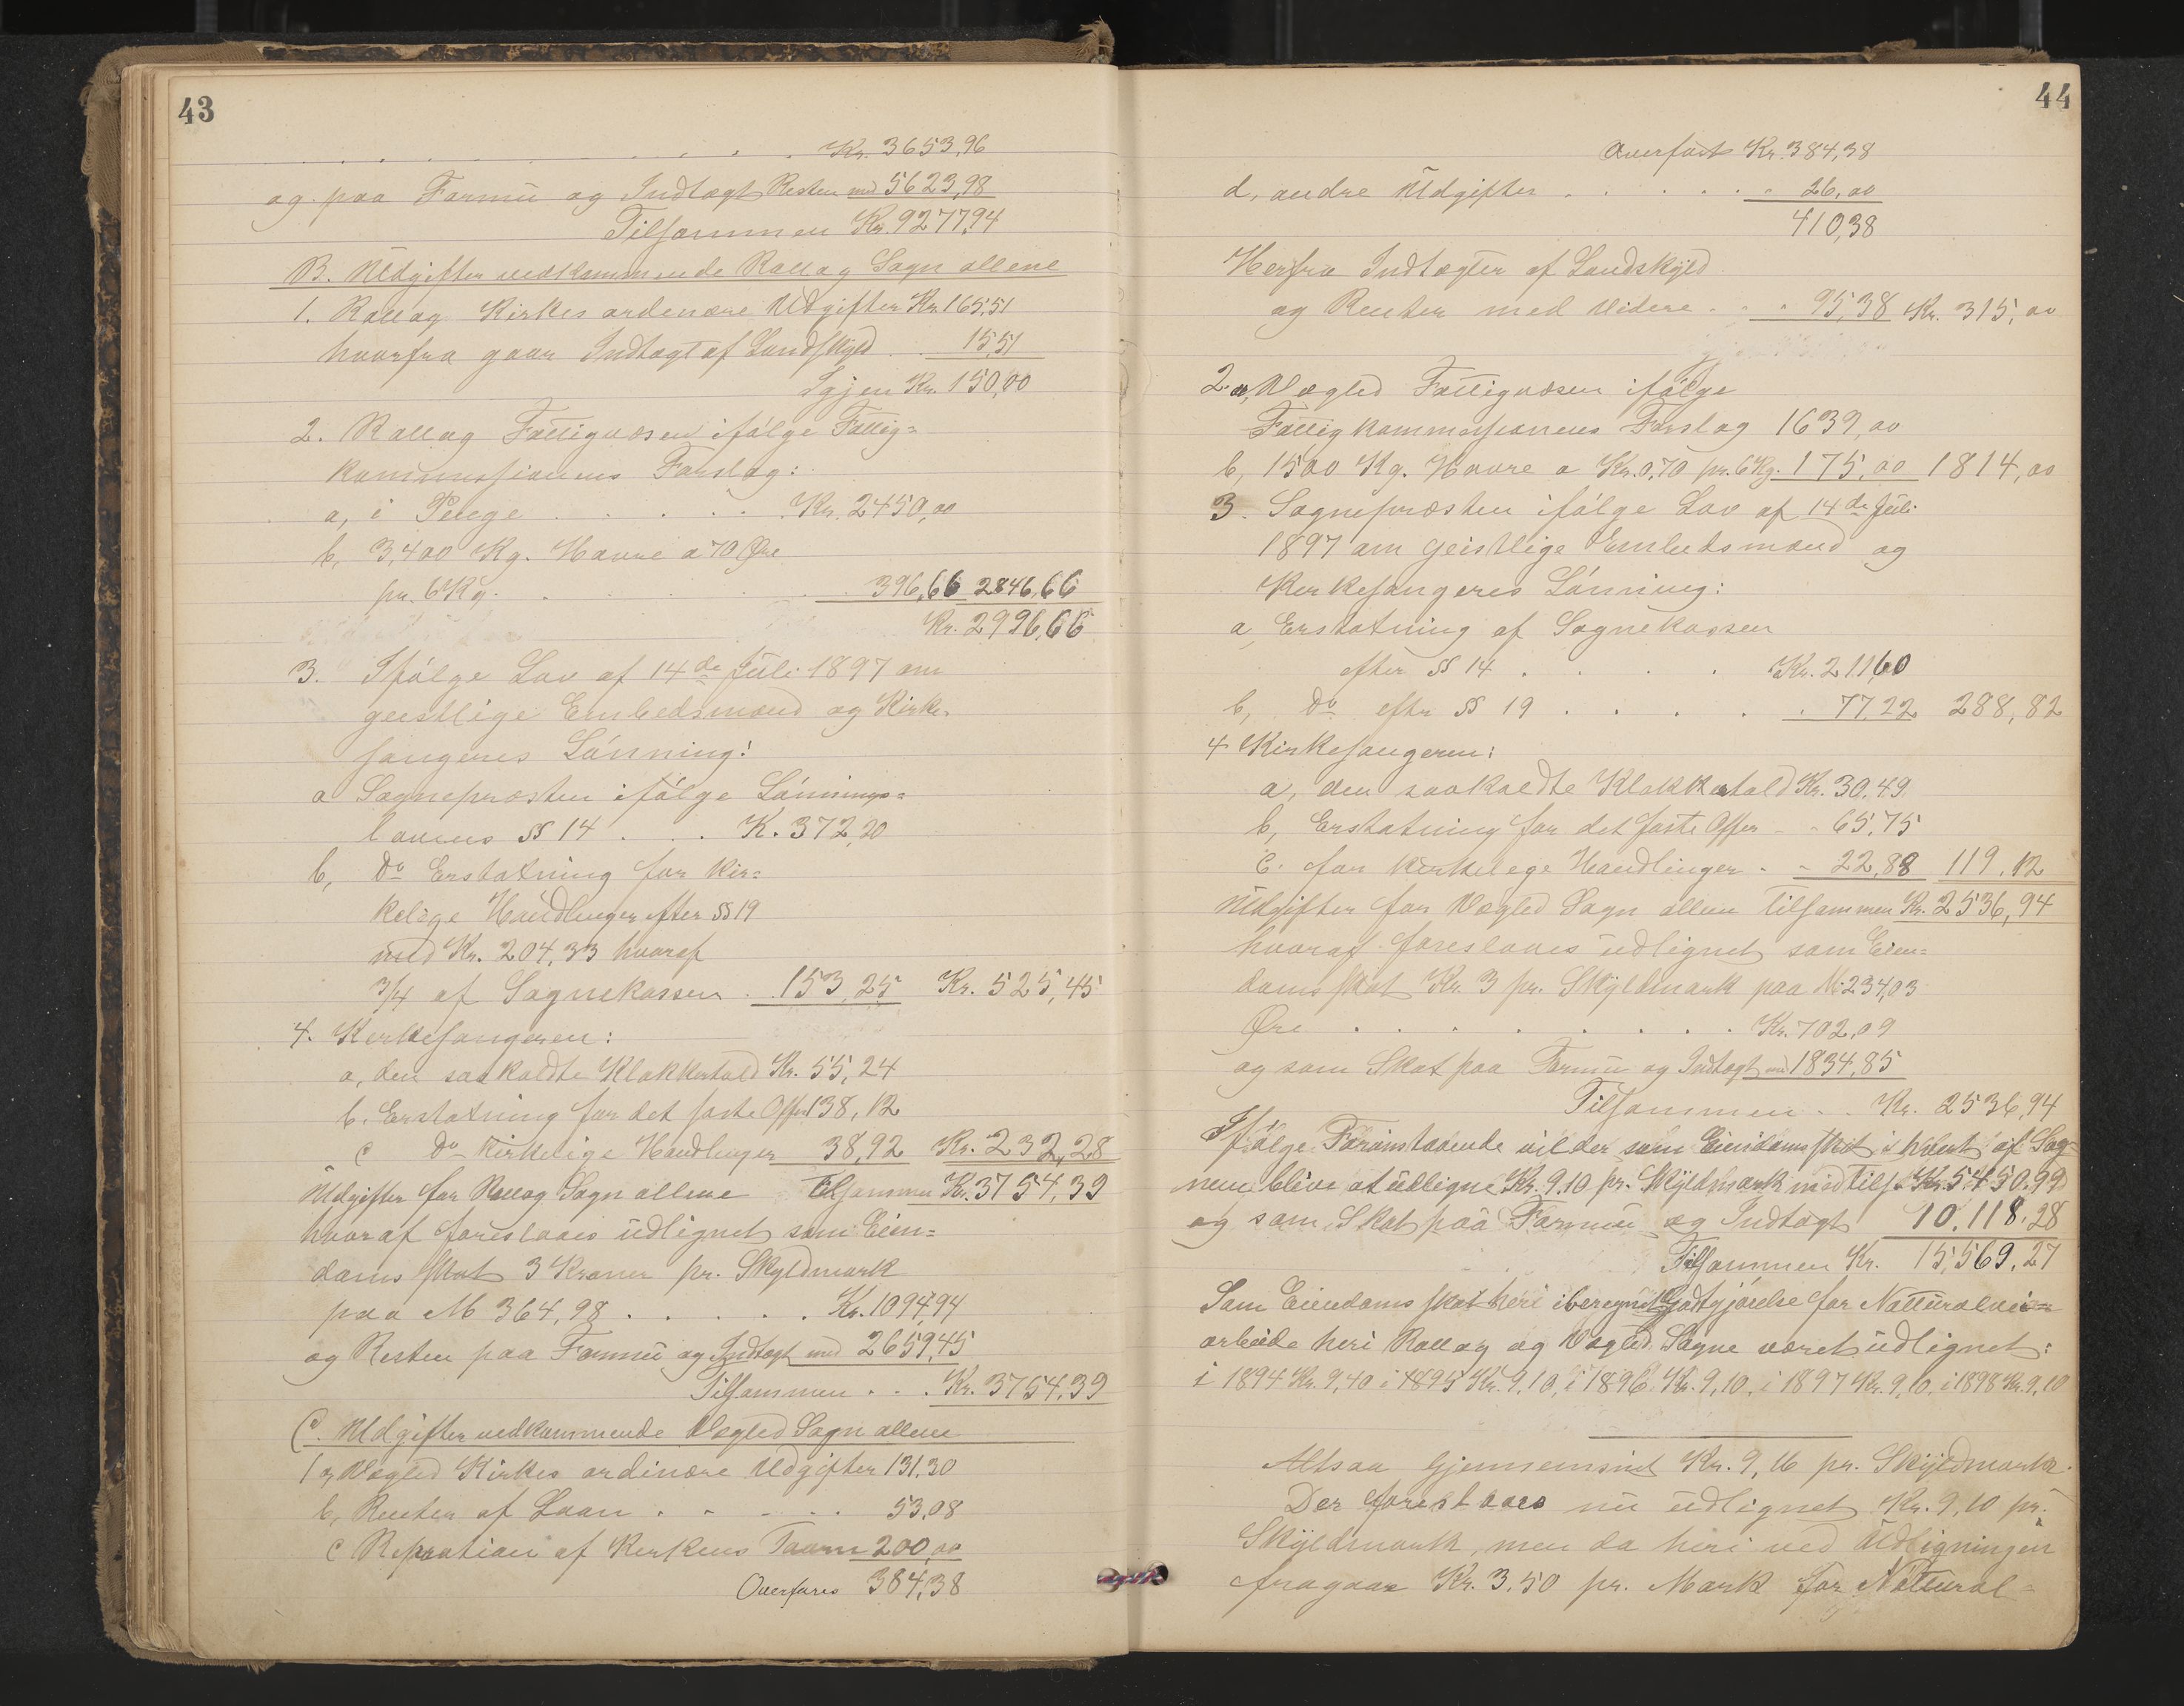 43
. . . . . . . . . . Kr. 3653,96
og paa Formu og Indtægt Resten med 5623,98
Tilsammen Kr. 9277,94
B. Udgifter vedkommende Rollag Sogn allene
1. Rollag Kirkes ordenære Udgifter Kr. 165,51
hvorfra gaar Indtægt af Landskyld . . 15,51
Igjen Kr. 150,00
2. Rollag Fattigvæsen ifølge Fattig=
kommissionens Forslag:
a, i Penge . . . . . Kr. 2450,00
b, 3,400 Kg. Havre a 70 Øre
pr. 6 Kg. . . . . . 396,66 2846,66
Kr. 2996,66
3. Ifølge Lov af 14de Juli 1897 om
geistlige Embedsmænd og Kirke-
sangeres Lønning:
a Sognepræsten ifølge Lønnings=
lovens §§ 14 . . . K. 372,20
b, Do Erstatning for kir=
kelige Handlinger efter §§ 19
med Kr. 204,33 hvoraf
3/4 af Sognekassen . 153,25 Kr. 525,45
4. Kirkesangeren:
a, den saakaldte Klokkertold Kr. 55,24
b. Erstatning for det faste Offer 138,12
c Do kirkelige Handlinger 38,92 Kr. 232,28
Udgifter for Rollag Sogn allene Tilsammen Kr. 3754,39
hvoraf foreslaaes udlignet som Eien=
doms skat 3 Kroner pr. Skyldmark
paa M 364,98 . . . . . Kr. 1094,94
og Resten paa Formu og Indtægt med 2659,45
Tilsammen . . . Kr. 3754,39
C. Udgifter vedkommende Vegled Sogn allene
1 a, Vegled Kirkes ordinære Udgifter 131,30
b, Renter af Laan . - - . . 53,08
c Repration af Kirkens Taarn 200,00
Overføres 384,38
44
Overført Kr. 384,38
d, andre Udgifter . . . . . . 26,00
410,38
Herfra Indtægter af Landskyld
og Renter med videre . . . 95,38 Kr. 315,00
2. a, Vegled Fattigvæsen ifølge
Fattigkommissionens Forslag 1639,00
b, 1500 Kg. Havre a Kr. 0,70 pr. 6 Kg. 175,00 1814,00
3. Sognepræsten ifølge Lov af 14de Juli
1897 om geistlige Embedsmænd og
Kirkesangeres Lønning:
a, Erstatning af Sognekassen
efter §§ 14 . . . . Kr. 211,60
b, Do efter §§ 19 . . . . . . 77,22 288,82
4 Kirkesangeren:
a, den saakaldte Klokkertold Kr. 30,49
b, Erstatning for det faste Offer - - 65,75
c. for kirkelege Handlinger - - 22,88 119,12
Udgifter for Vegled Sogn allene tilsammen Kr. 2536,94
hvoraf foreslaaes udlignet som Eien=
doms skat Kr. 3 pr. Skyldmark paa M. 234,03
Øre . . . . . . . . Kr. 702,09
og som Skat paa Formu og Indtægt med 1834,85
Tilsammen . . Kr. 2536,94
Ifølge Foranstaaende vil der som Eiendoms skat i hvert af Sog-
nene blive at udligne Kr. 9.10 pr. Skyldmark med tils. Kr. 5450.99
og som Skat paa Formu og Indtægt 10.118.28
Tilsammen Kr. 15,569,27
Som Eiendoms skat heri iberegnet Godtgjørelse for Natturalvei=
arbeide heri Rollag og Vegled Sogne været udlignet:
i 1894 Kr. 9,40 i 1895 Kr. 9,10, i 1896 Kr. 9,10, i 1897 Kr. 9,10, i 1898 Kr. 9,10
Altsaa Gjennemsnit Kr. 9,16 pr. Skyldmark.
Der foreslaaes nu udlignet Kr. 9,10 pr.
Skyldmark, men da heri ved Udligningen
fragaar Kr. 3,50 pr. Mark for Natural=